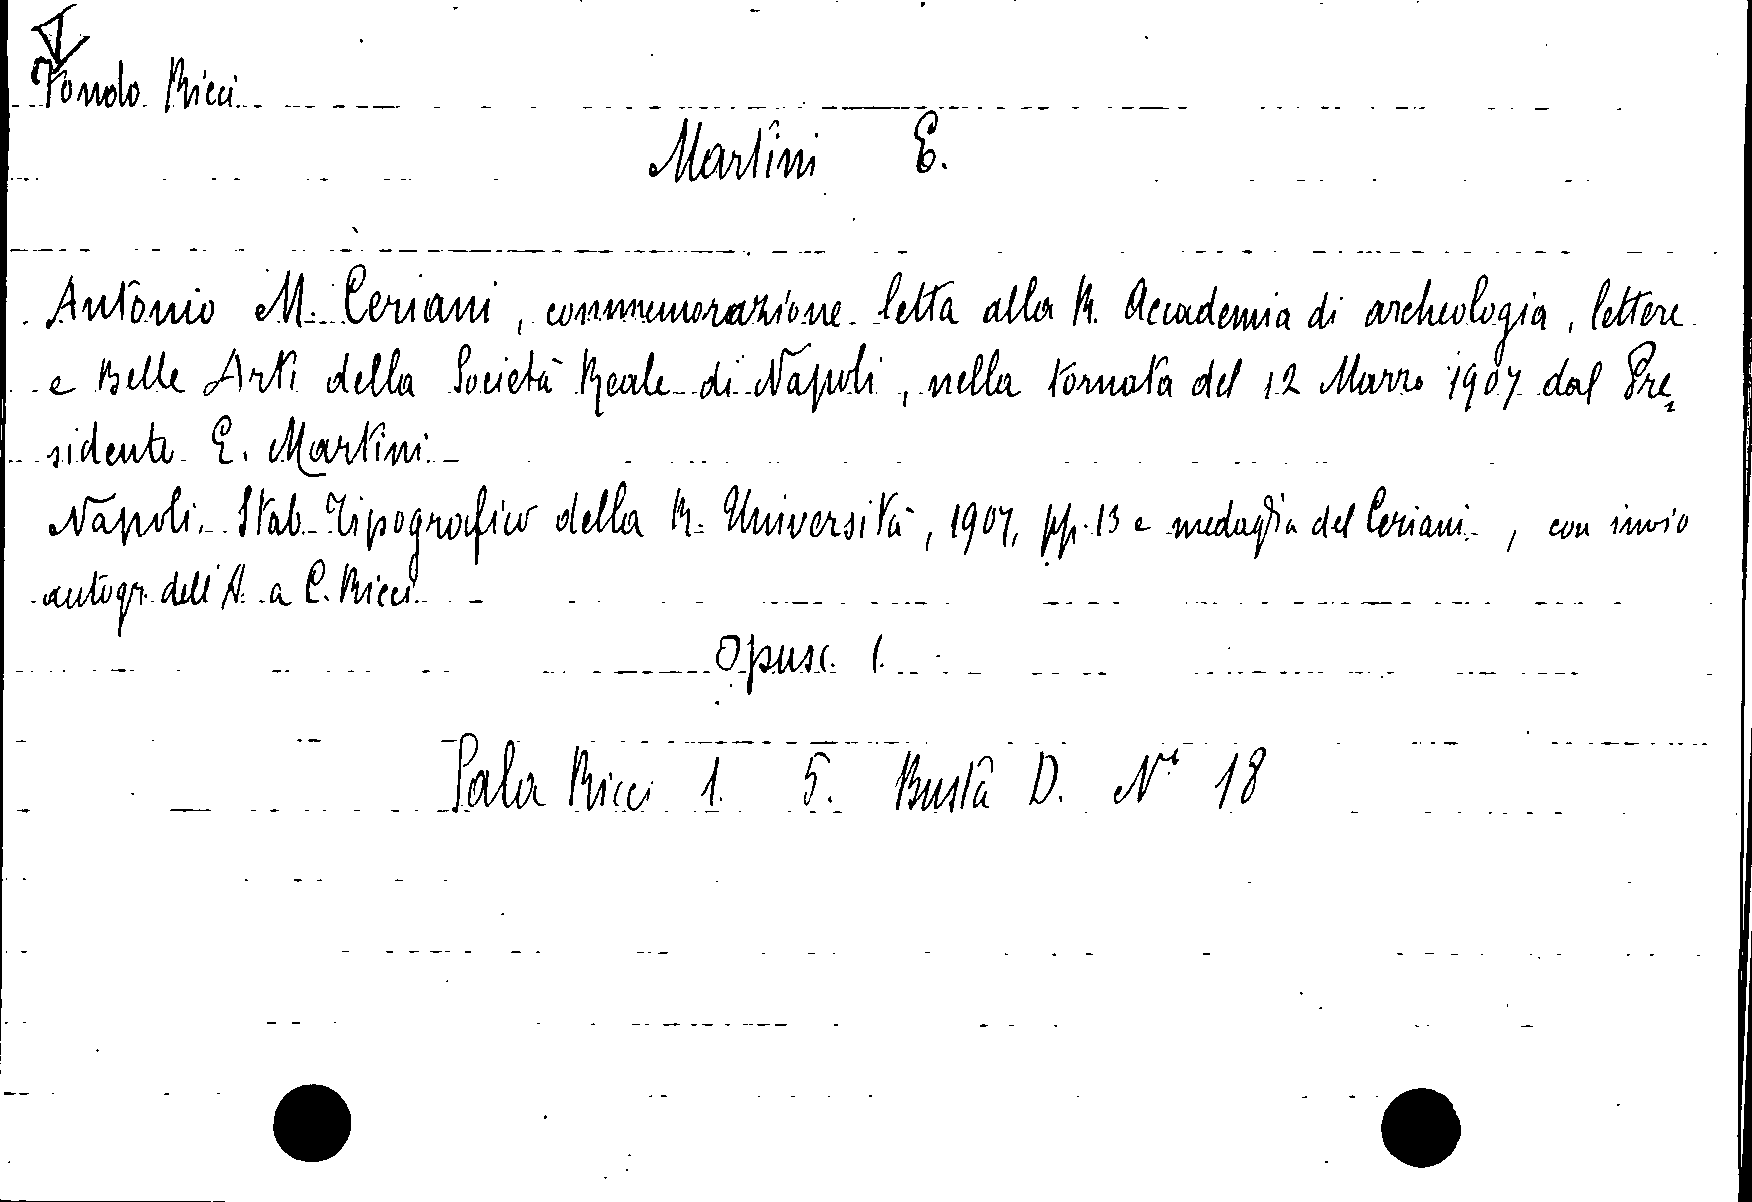 Fondo Ricci
Martini E.
Antonio M. Ceriani, commemorazione letta alla R. Accademia di archeologia, lettere
e Belle Arti della Società Reale di Napoli, nella tornata del 12 Marzo 1907 dal Pre=
sidente E. Martini
Napoli. Stab. Tipografico della R. Università, 1907, pp. 13 e medaglia del Ceriani, con invio
autogr. dell'A. a C. Ricci
Opusc. 1.
Sala Ricci 1. 5. Busta D. N° 18